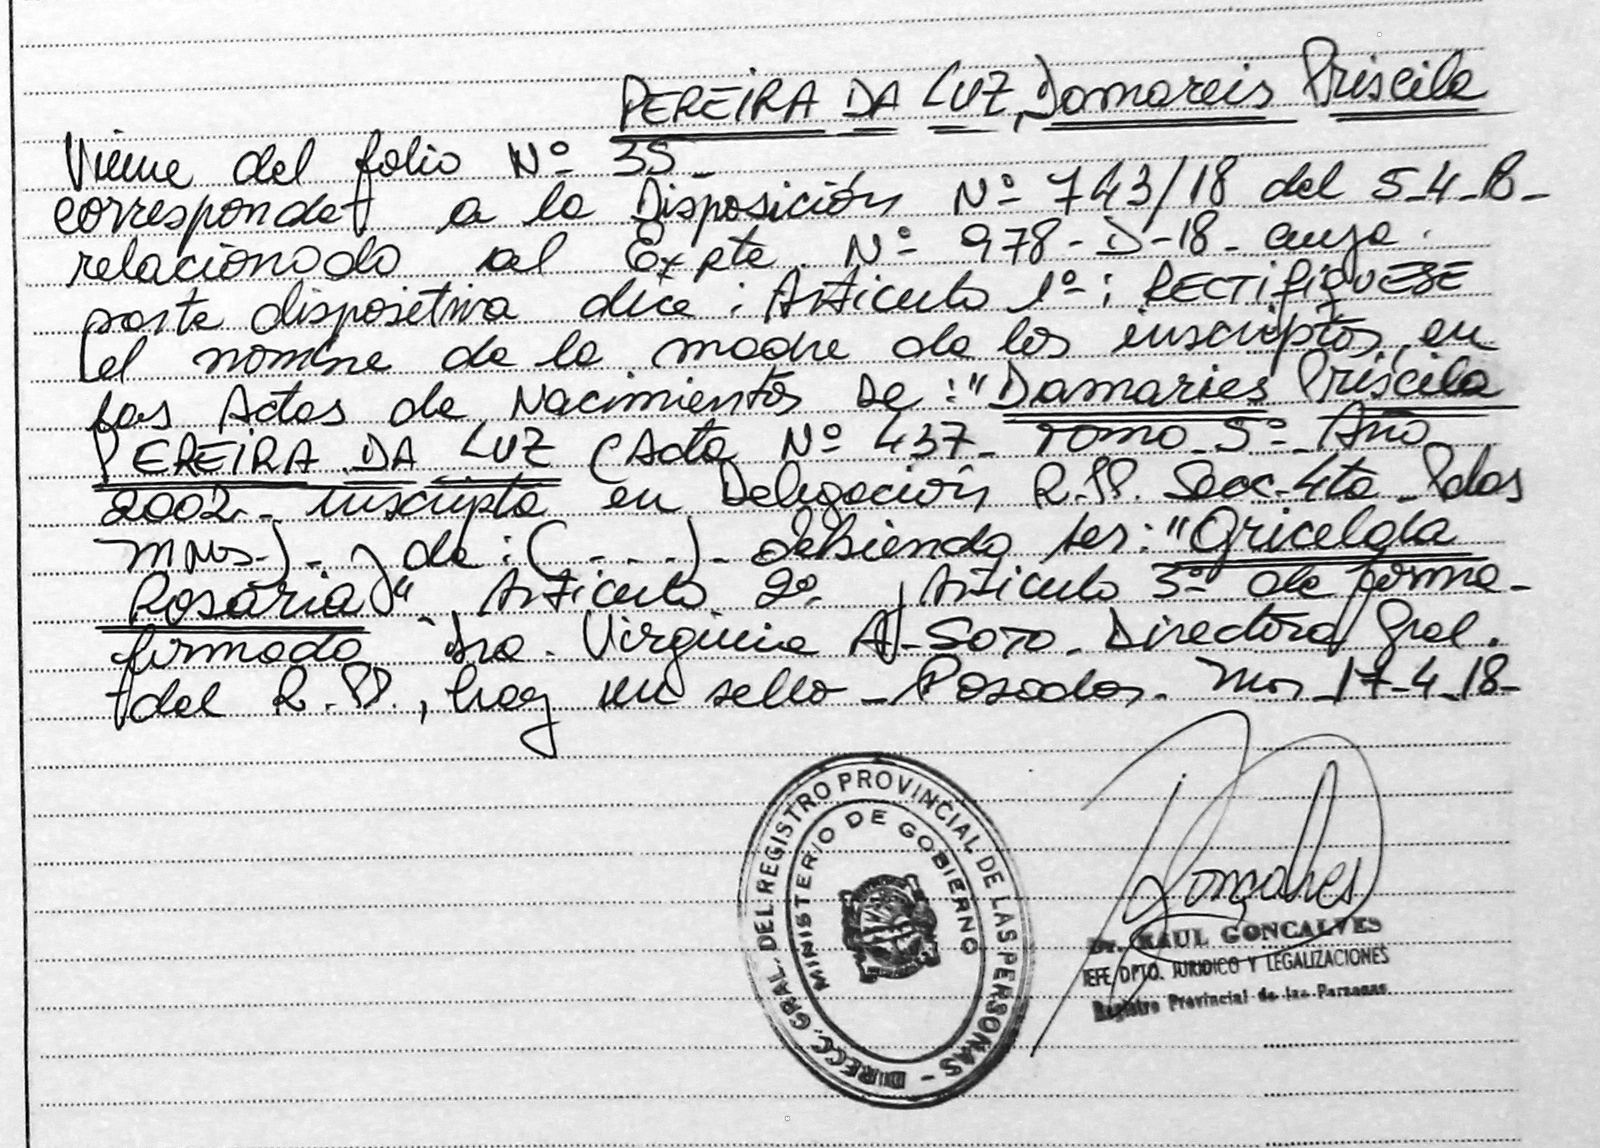 PEREIRA DA LUZ, Damareis Priscila
Viene del folio Nº 35_
corresponde a la Disposición Nº 743/18 del 5_4_18_
relacionado al Expte. Nº 978-D-18- cuya
parte dispositiva dice: Articulo 1º: RECTIFIQUESE
el nombre de la madre de los inscriptos, en
las Actas de Nacimientos de: "Damaries Priscila
PEREIRA DA LUZ (Acta Nº 437_ Tomo_5º_ Año
2002_ inscripta en Delegación R.PP. Secc. 4ta_ Pdas
Mnes.)_ y de: (....)_ debiendo ser: "Gricelda
Rosaria" Articulo 2º, Articulo 3º de forma_
firmado Dra. Virginia A. Soto_ Directora Gral.
del R.PP., hay un sello_ Posadas. Mnes 17_4_18_
DIRECC. GRAL. DEL REGISTRO PROVINCIAL DE LAS PERSONAS -
MINISTERIO DE GOBIERNO
Goncalves
Dr. RAUL GONCALVES
JEFE DPTO. JURIDICO Y LEGALIZACIONES
Registro Provincial de las Personas